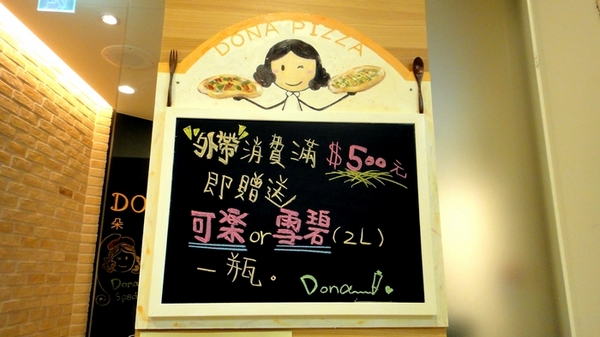 DONA PIZZA
外帶消費滿$500元
即贈送
可楽or雪碧(2L)
一瓶。
Dona
DO
朵
Dona
Spe